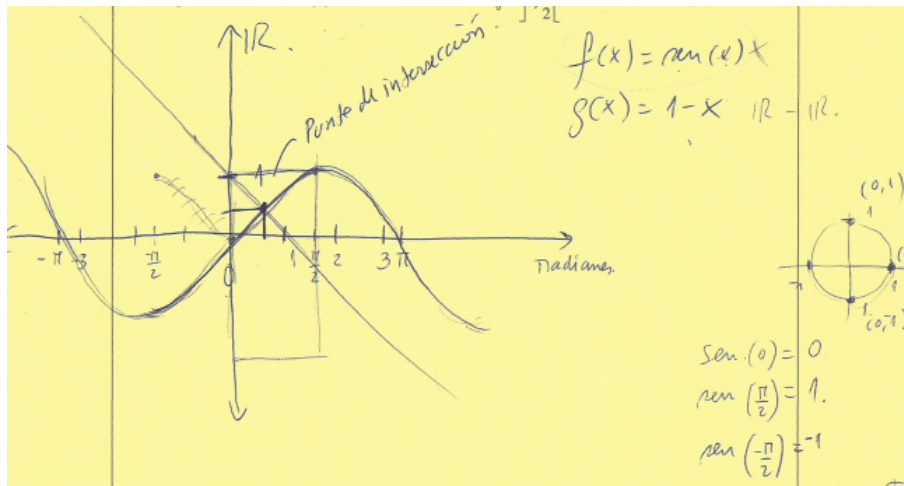 IR.
Punto de intersección.
]
2[
f(x) = sen(x) x
g(x) = 1 - x IR - IR.
1
-π -3 -π/2 0 1 π/2 2 3 π
radianes.
(0,1)
1
-1 1
1
(0,-1)
sen.(0) = 0
sen (π/2) = 1.
sen (-π/2) = -1